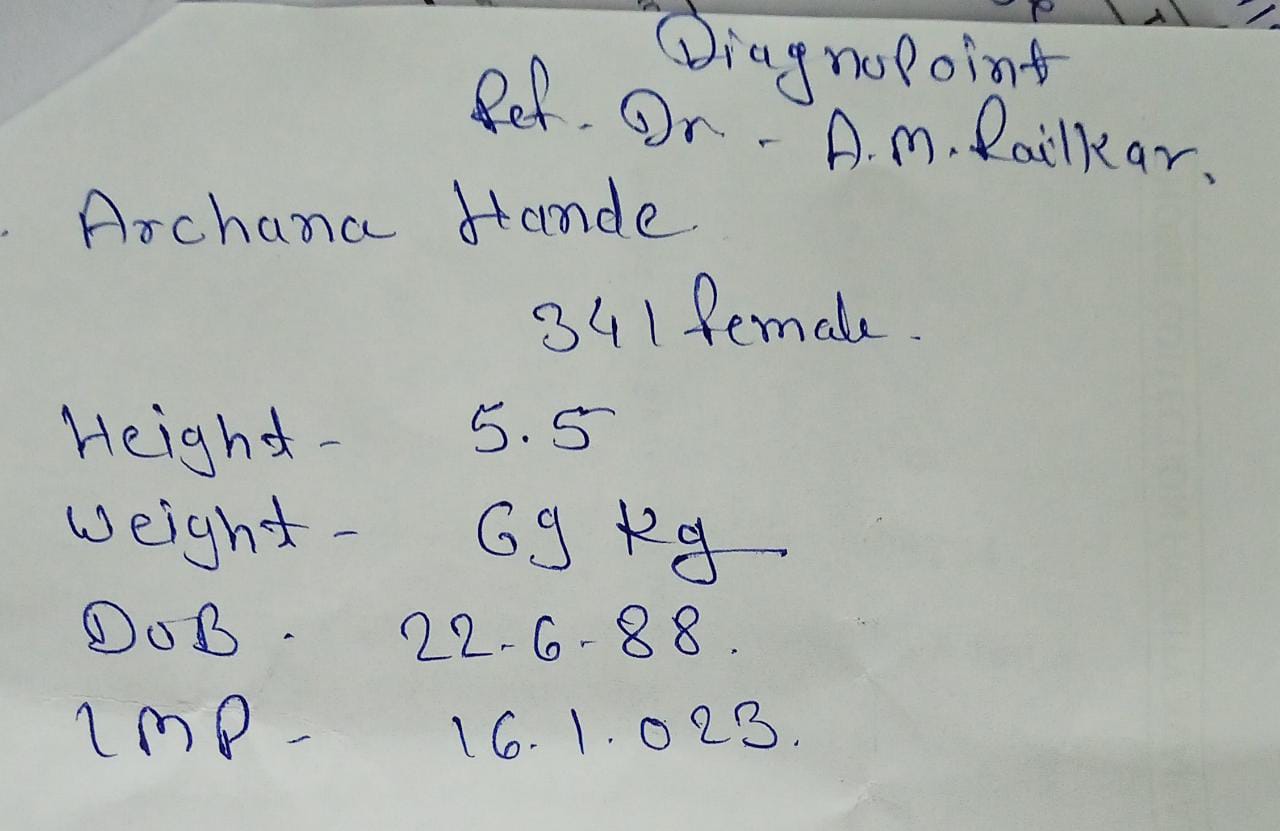 Diagnopoint
Ref. Dr. - A.M. Railkar.
Archana Hande
34 / female.
Height - 5.5
Weight - 69 kg
DOB. 22-6-88.
LMP - 16.1.023.